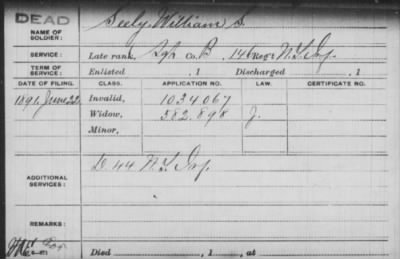 DEAD
NAME OF SOLDIER: Seely, William S.
SERVICE: Late rank, Sgt Co. B, 146 Reg't N.Y. Inf.
TERM OF SERVICE: Enlisted , 1 Discharged , 1
DATE OF FILING. CLASS. APPLICATION NO. LAW. CERTIFICATE NO.
1891, June 22. Invalid, 1034067
Widow, 582.898 J.
Minor,
ADDITIONAL SERVICES: D. 44 N.Y. Inf.
REMARKS:
Died , 1 , at